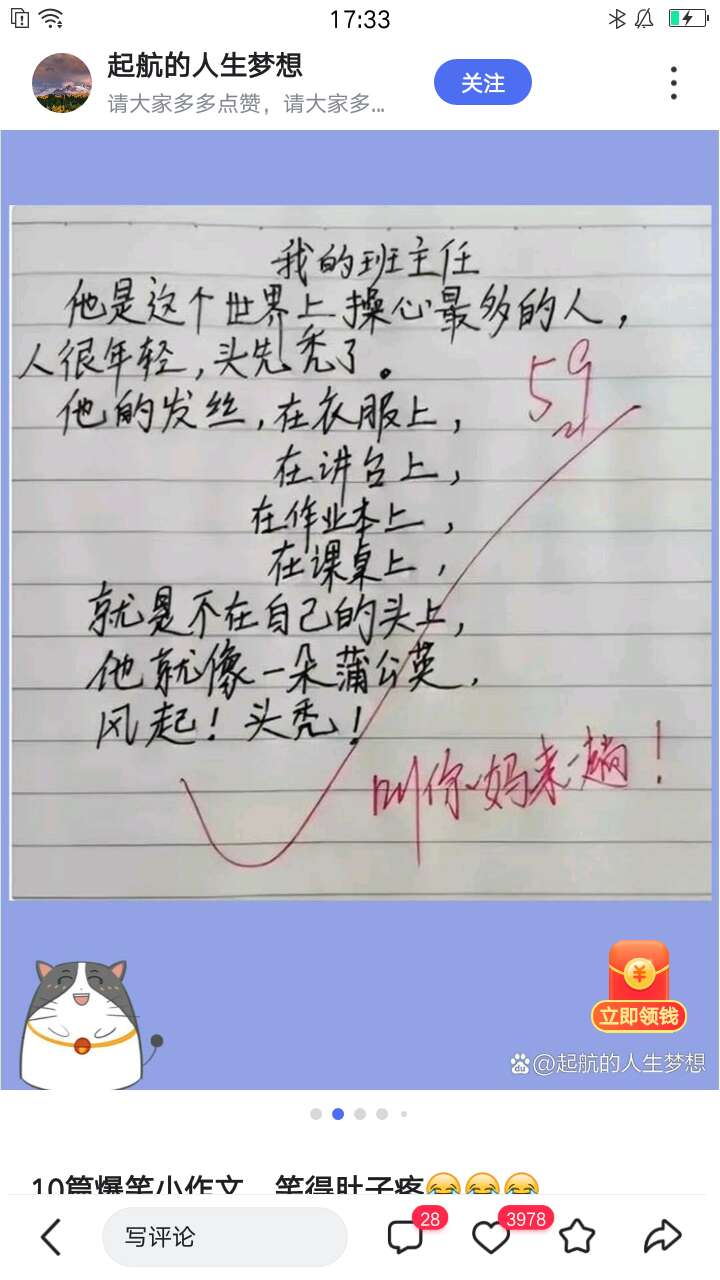 17:33
起航的人生梦想
请大家多多点赞，请大家多...
关注
我的班主任
他是这个世界上操心最多的人，
人很年轻，头先秃了。
59
他的发丝，在衣服上，
在讲台上，
在作业本上，
在课桌上，
就是不在自己的头上，
他就像一朵蒲公英，
风起！头秃！
叫你妈来一趟！
立即领钱
@起航的人生梦想
10篇爆笑小作文，笑得肚子疼😂😂😂
写评论
28
3978